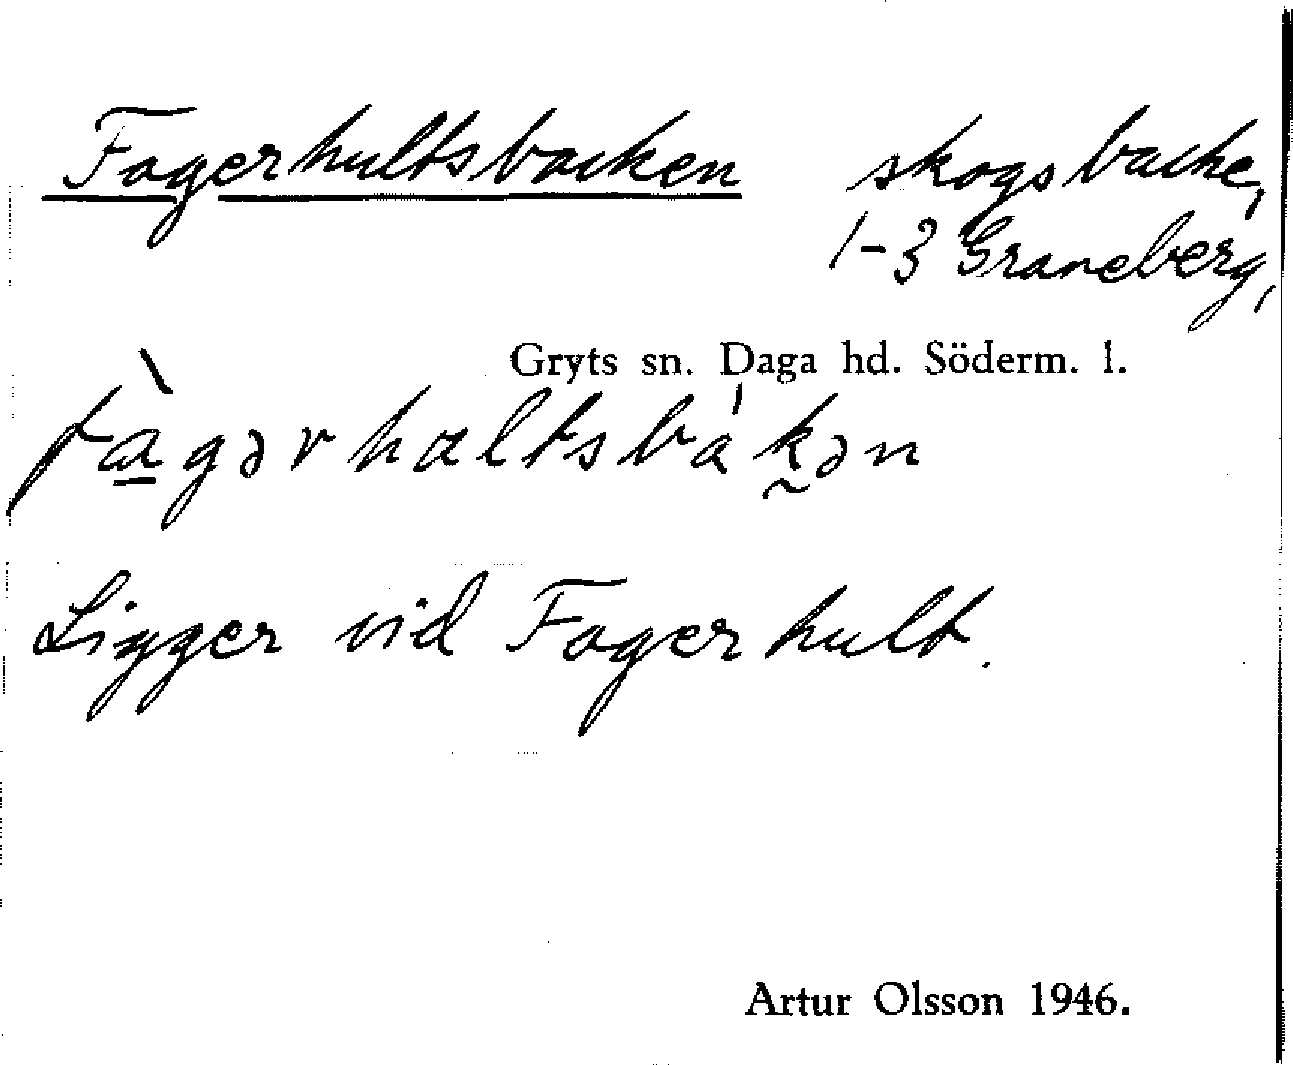 Fagerhultsbacken skogsbacke,
1-3 Graneberg,
Gryts sn. Daga hd. Söderm. l.
fàgərhæltsbákən
Ligger vid Fagerhult.
Artur Olsson 1946.